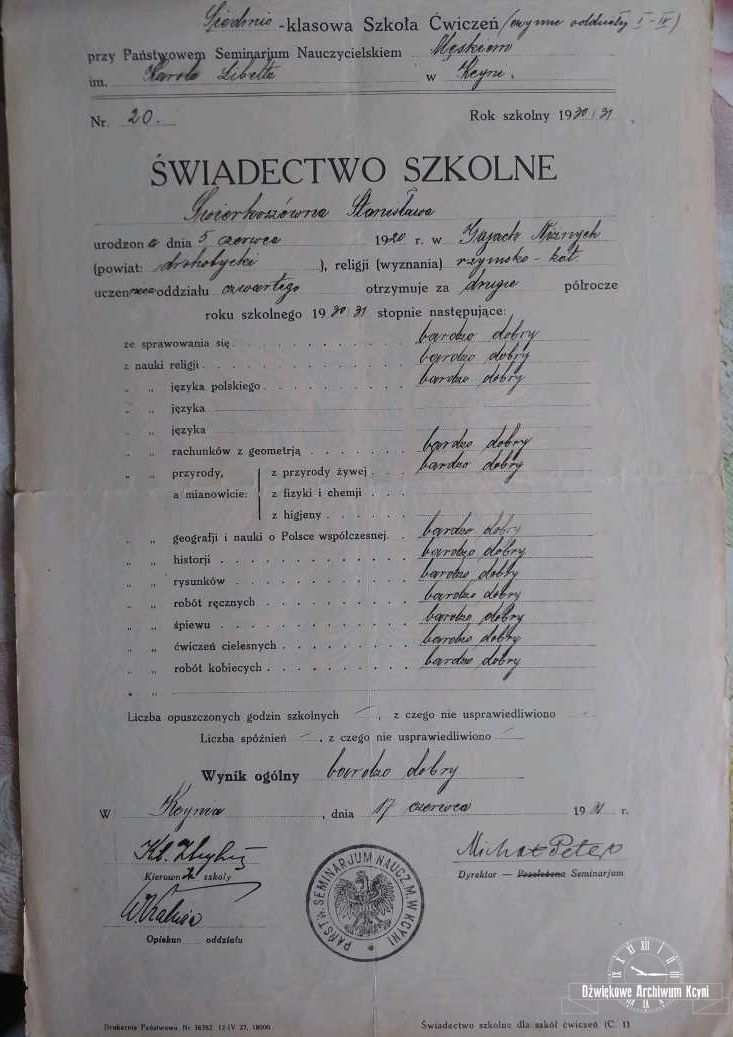 Siedmio -klasowa Szkoła Ćwiczeń (czynne oddziały I-IV)
przy Państwowem Seminarjum Nauczycielskiem Męskiem
im. Karola Libelta w Kcyni.
Nr. 20. Rok szkolny 1930/31
ŚWIADECTWO SZKOLNE
Świerkoszówna Stanisława
urodzona dnia 5 czerwca 1920 r. w Gajach Niżnych
(powiat: drohobycki ), religji (wyznania) rzymsko-kat.
uczennica oddziału czwartego otrzymuje za drugie półrocze
roku szkolnego 1930/31 stopnie następujące:
ze sprawowania się bardzo dobry
z nauki religji bardzo dobry
„ „ języka polskiego bardzo dobry
„ „ języka
„ „ języka
„ „ rachunków z geometrją bardzo dobry
„ „ przyrody, z przyrody żywej bardzo dobry
a mianowicie: z fizyki i chemji
z higjeny
„ „ geografji i nauki o Polsce współczesnej. bardzo dobry
„ „ historji bardzo dobry
„ „ rysunków bardzo dobry
„ „ robót ręcznych bardzo dobry
„ „ śpiewu bardzo dobry
„ „ ćwiczeń cielesnych bardzo dobry
„ „ robót kobiecych bardzo dobry
„ „
Liczba opuszczonych godzin szkolnych —, z czego nie usprawiedliwiono —
Liczba spóźnień —, z czego nie usprawiedliwiono —
Wynik ogólny bardzo dobry
W Kcynia, dnia 17 czerwca 1931 r.
Michał Peter
Kierownik szkoły
Dyrektor — Przełożona Seminarjum
Opiekun oddziału
PAŃSTW. SEMINARJUM NAUCZ. M. W KCYNI
XII
Dźwiękowe Archiwum Kcyni
Drukarnia Państwowa Nr 36582 12-IV 27. 18000
Świadectwo szkolne dla szkół ćwiczeń (C. 1)